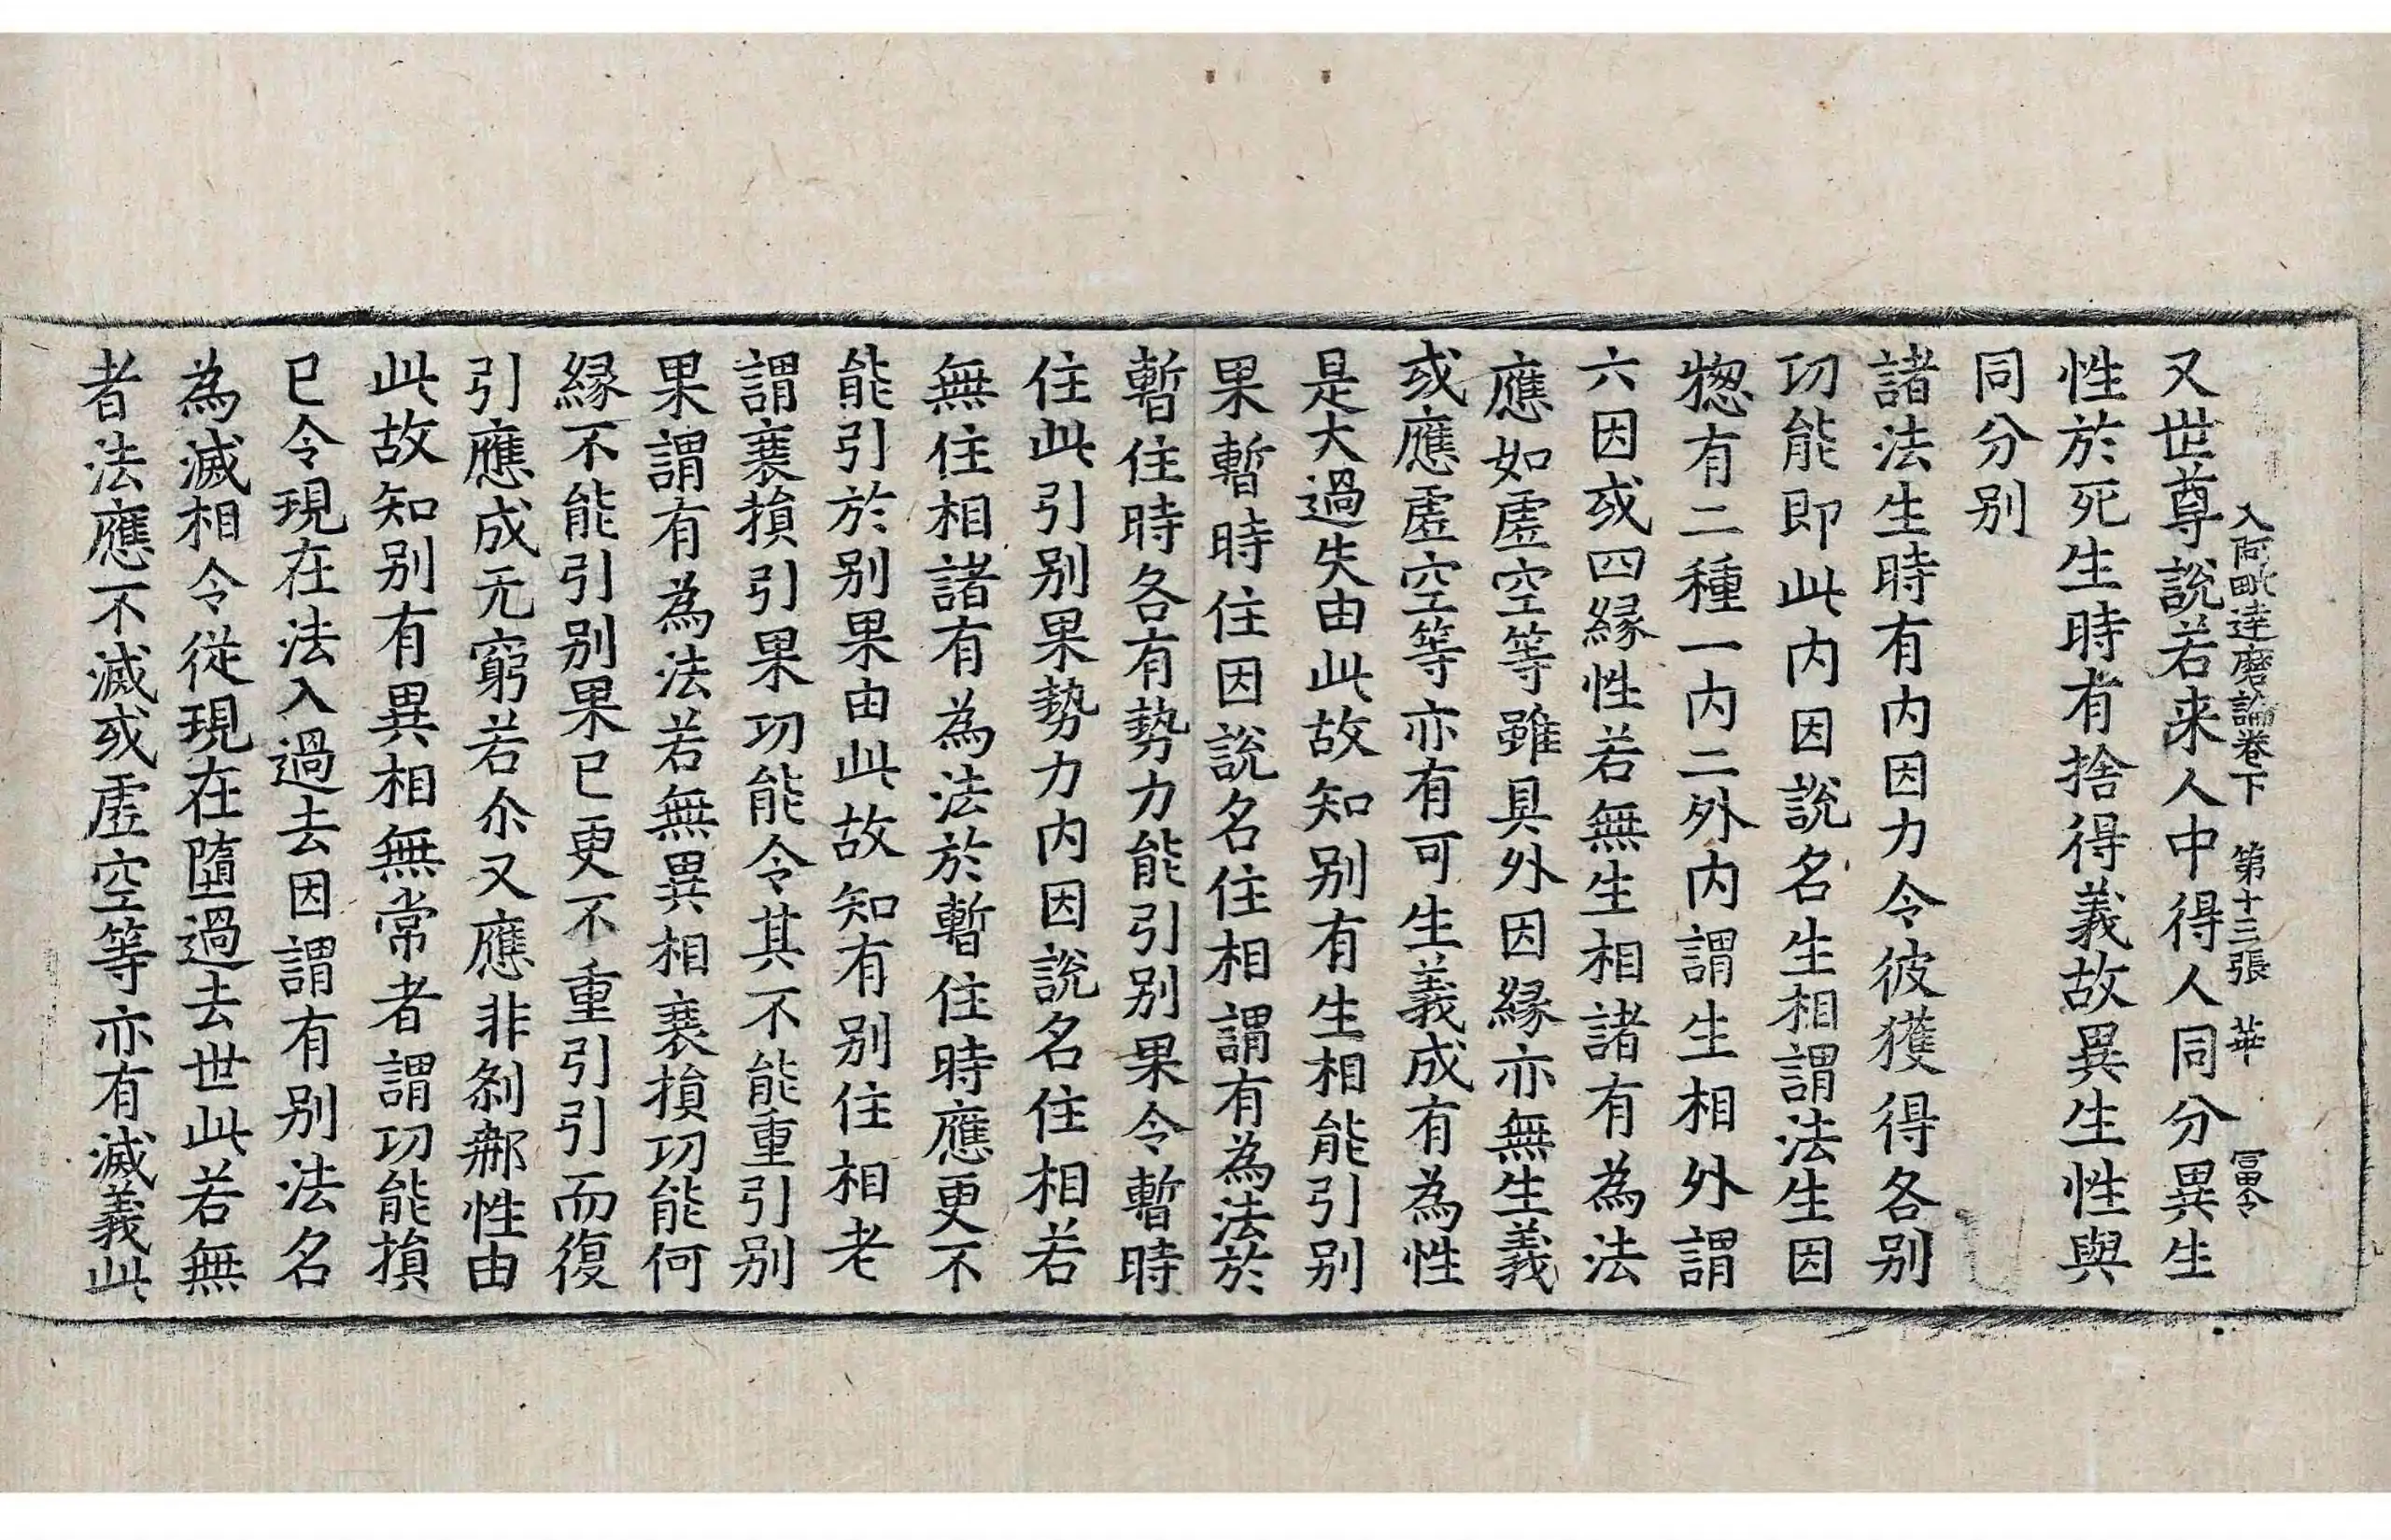 入阿毗達磨論卷下 第十三張 華 冨令
又世尊說若来人中得人同分異生
性於死生時有捨得義故異生性與
同分別
諸法生時有内因力令彼獲得各別
功能即此内因說名生相謂法生因
惣有二種一内二外内謂生相外謂
六因或四縁性若無生相諸有為法
應如虛空等雖具外因縁亦無生義
或應虛空等亦有可生義成有為性
是大過失由此故知別有生相能引別
果暫時住因說名住相謂有為法於
暫住時各有勢力能引別果令暫時
住此引別果勢力内因說名住相若
無住相諸有為法於暫住時應更不
能引於別果由此故知有別住相老
謂衰損引果功能令其不能重引別
果謂有為法若無異相衰損功能何
縁不能引別果已更不重引引而復
引應成无窮若尒又應非剎那性由
此故知別有異相無常者謂功能損
已令現在法入過去因謂有別法名
為滅相令從現在墮過去世此若無
者法應不滅或虛空等亦有滅義此